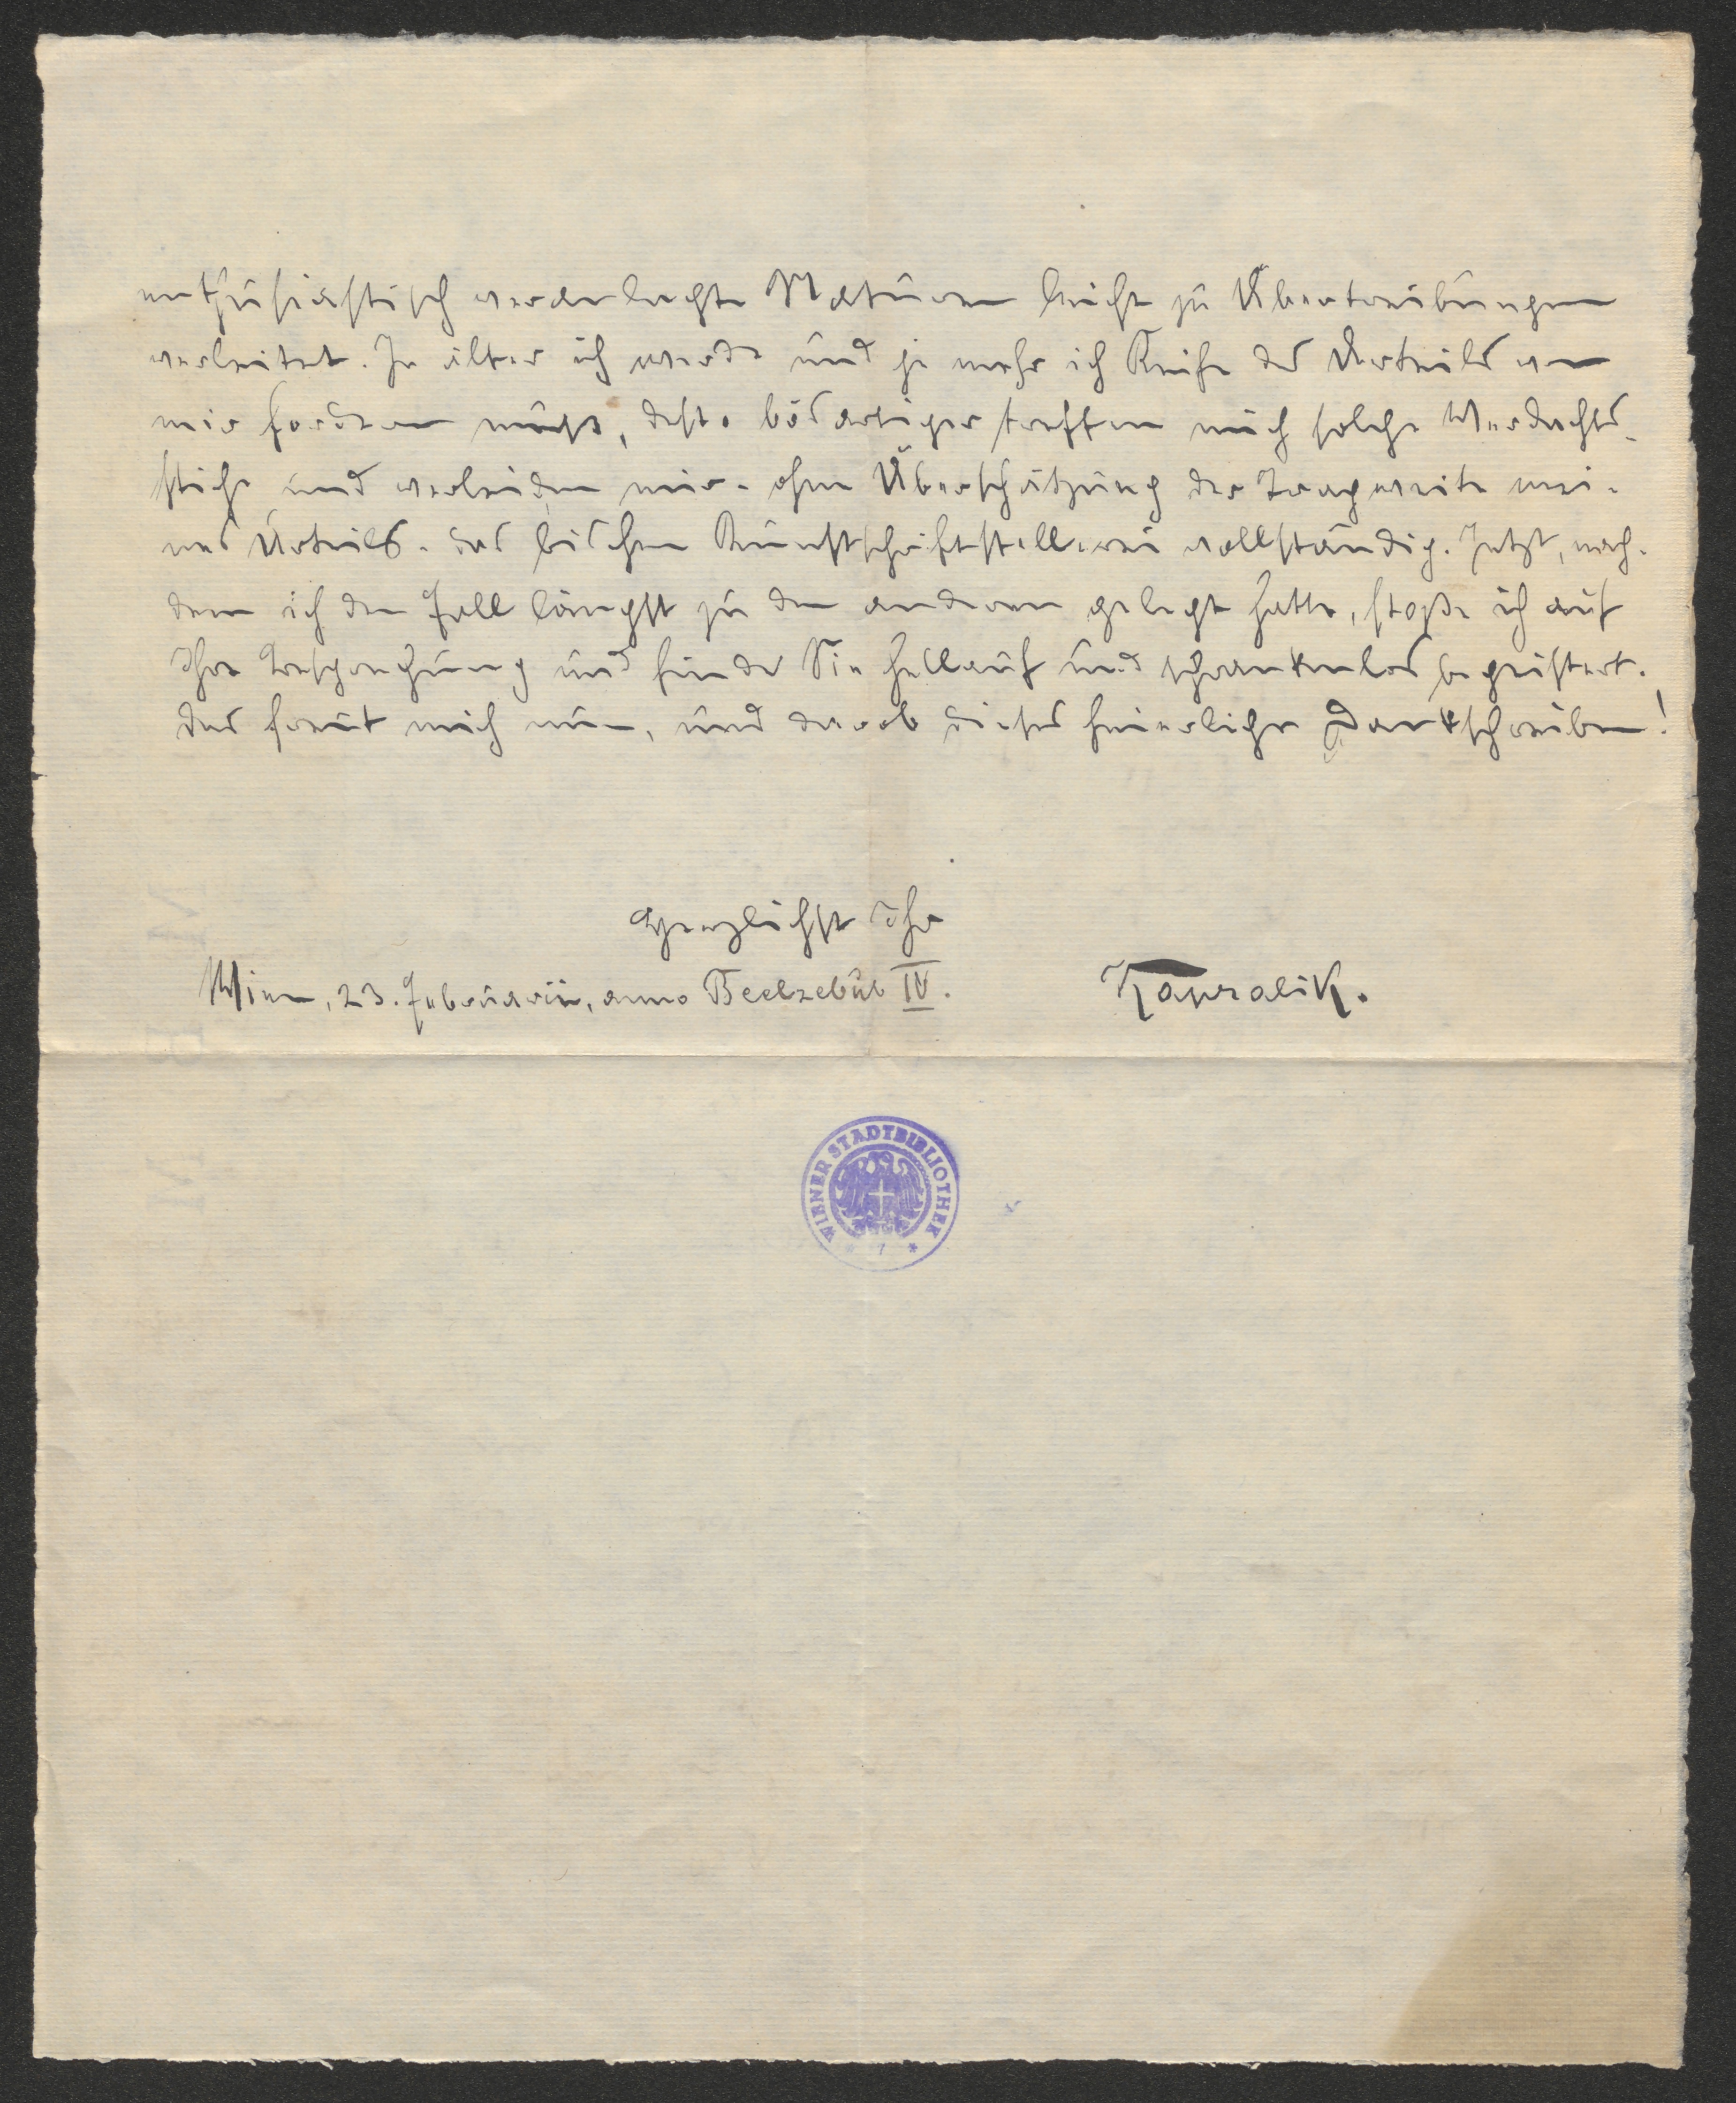 enthusiastisch veranlagte Naturen leicht zu Übertreibungen
verleitet. Je älter ich werde und je mehr ich Reife des Urteils von
mir fordern muß, desto bösartiger treffen mich solche Verdachts-
stiche und verleiden mir - ohne Überschätzung der Tragweite mei-
nes Urteils - das bischen Kunstschriftstellerei vollständig. Jetzt, nach-
dem ich den Fall längst zu den anderen gelegt hatte, stoße ich auf
Ihre Besprechung und finde Sie hellauf und schrankenlos begeistert.
Das freut mich nun, und darob dieses feierliche Dankschreiben!
Herzlichst Ihr
Wien, 23. Februarii, anno Beelzebub IV.
Kapralik.
WIENER STADTBIBLIOTHEK
* 7 *